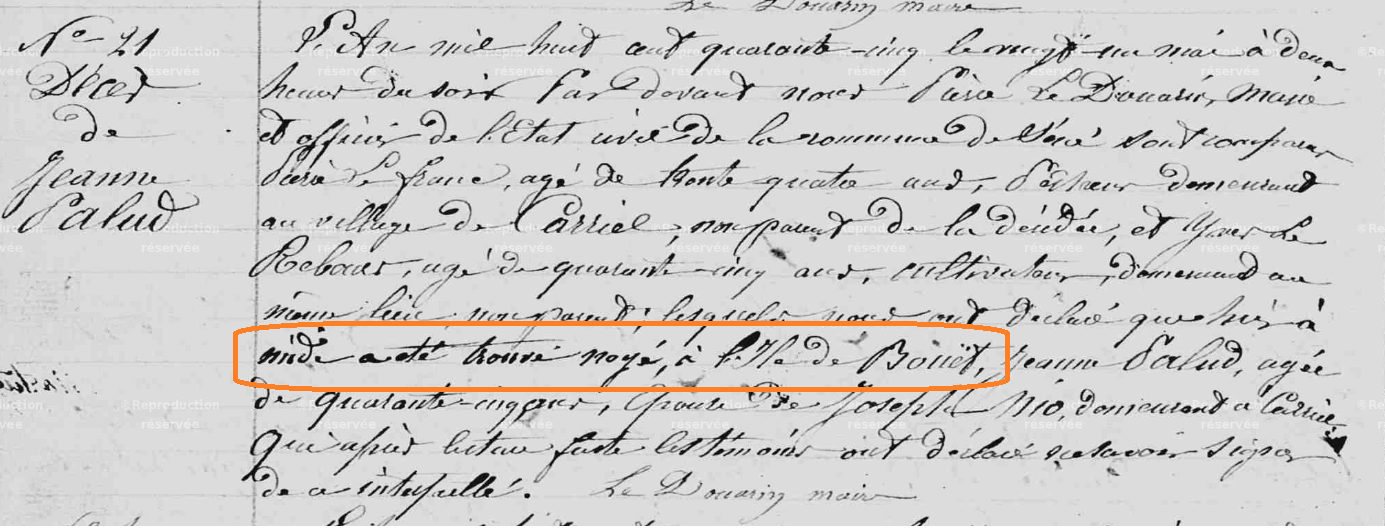 Le Douarin maire
N° 21
Décès
de
Jeanne
Palud
L'An mil huit cent quarante-cinq le vingt-un mai à deux
heures du soir Par devant nous Pierre Le Douarin, Maire
et officier de l'Etat civil de la commune de Séné sont comparus
Pierre Le franc, agé de trente quatre ans, Pêcheur demeurant
au village de Carriel, non parent de la décédée, et Yves Le
Rebour, agé de quarante-cinq ans, cultivateur, demeurant au
même lieu non parent; lesquels nous ont déclaré que hier à
midi a été trouvé noyé, à l'Ile de Bouët, Jeanne Palud, agée
de quarante-cinq ans, Epouse de Joseph Nio, demeurant a Carriel
Qui après lecture faite les témoins ont déclaré ne savoir signer
de ce interpellé. Le Douarin maire
Reproduction réservée